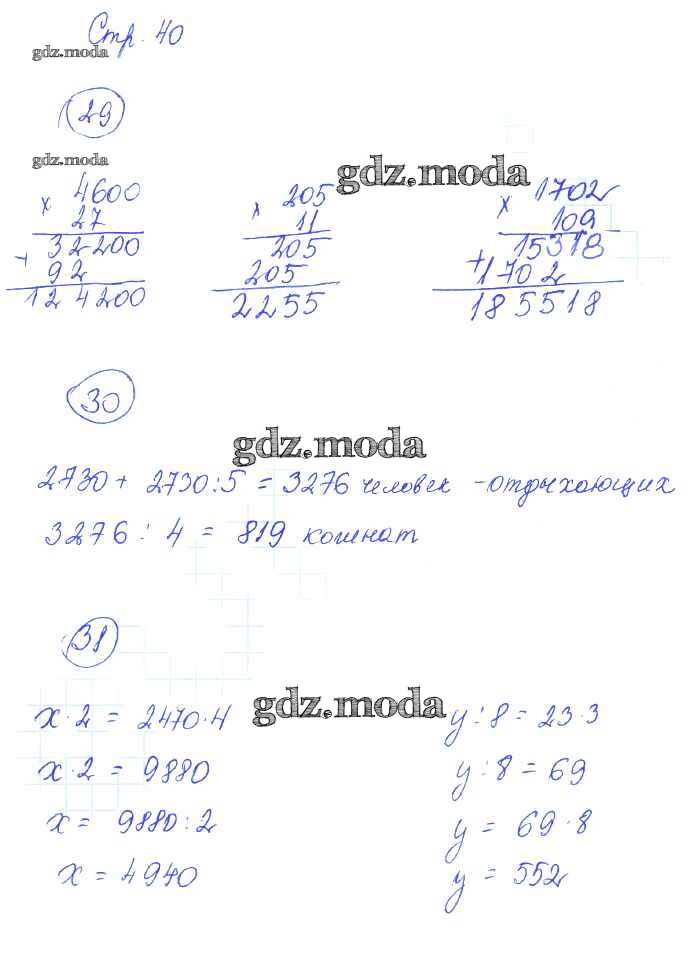 Стр. 40
gdz.moda
29
gdz.moda
gdz.moda
× 4600
27
+ 32200
92
124200
× 205
11
205
205
2255
× 1702
109
15318
+ 1702
185518
30
gdz.moda
2730 + 2730:5 = 3276 человек - отдыхающих
3276 : 4 = 819 комнат
31
gdz.moda
x·2 = 2470·4
x·2 = 9880
x = 9880:2
x = 4940
y:8 = 23·3
y:8 = 69
y = 69·8
y = 552